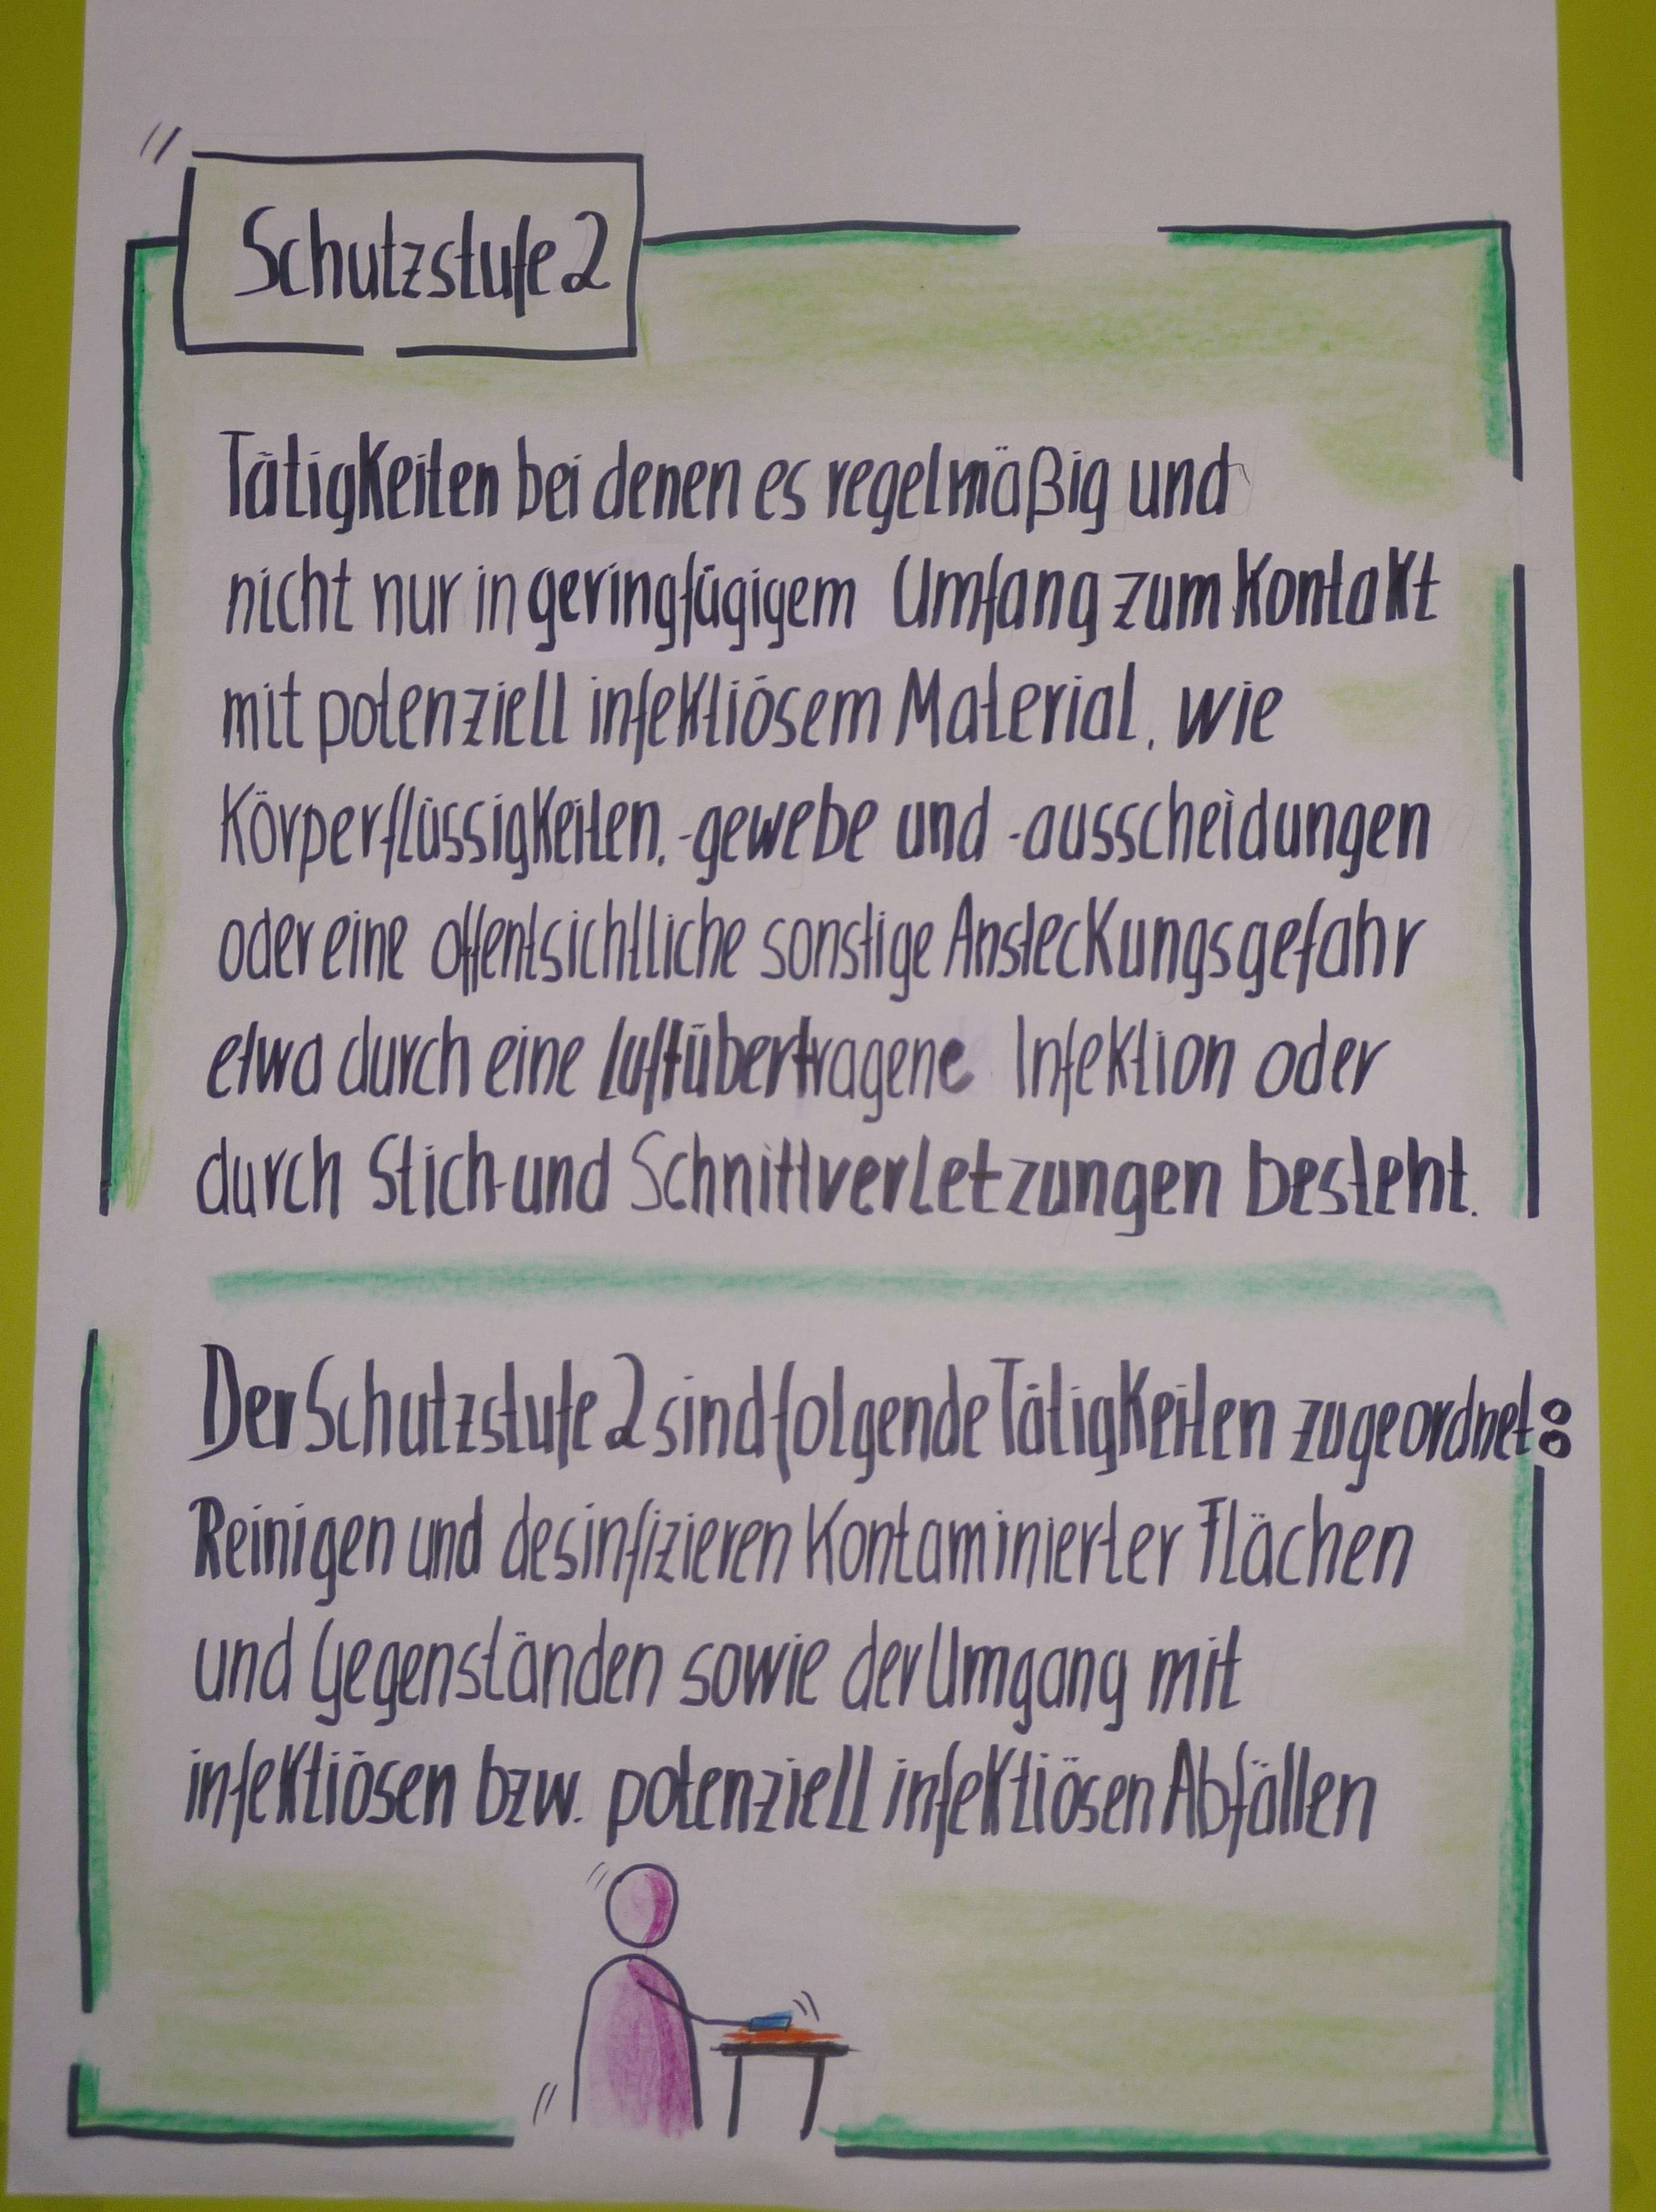 Schutzstufe 2
Tätigkeiten bei denen es regelmäßig und
nicht nur in geringfügigem Umfang zum Kontakt
mit potenziell infektiösem Material, wie
Körperflüssigkeiten, -gewebe und -ausscheidungen
oder eine offentsichtliche sonstige Ansteckungsgefahr
etwa durch eine luftübertragene Infektion oder
durch Stich-und Schnittverletzungen besteht.
Der Schutzstufe 2 sind folgende Tätigkeiten zugeordnet:
Reinigen und desinfizieren Kontaminierter Flächen
und Gegenständen sowie der Umgang mit
infektiösen bzw. potenziell infektiösen Abfällen